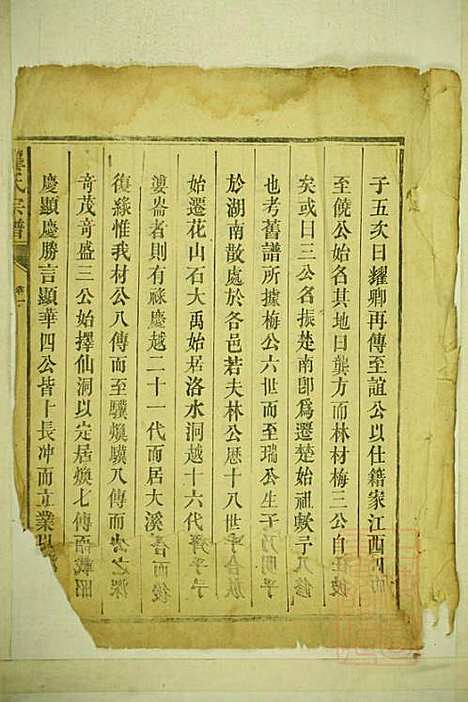 子五次曰耀卿再傳至誼公以仕籍家江西四而
至饒公始名其地曰龔方而林材梅三公自
矣或曰三公名振楚南卽爲遷楚始祖歟
也考舊譜所據梅公六世而至瑞公生子乃
於湖南散處於各邑若夫林公歷十八世
始遷花山石大禹始居洛水洞越十六代
婁崙者則有祿慶越二十一代而居大溪
復綠惟我材公八傳而至驥煥驥八傳而
奇茂奇盛三公始擇仙洞以定居煥七傳而載昭
慶顯慶勝言顯華四公皆十長冲而立業以
龔氏宗譜
卷一